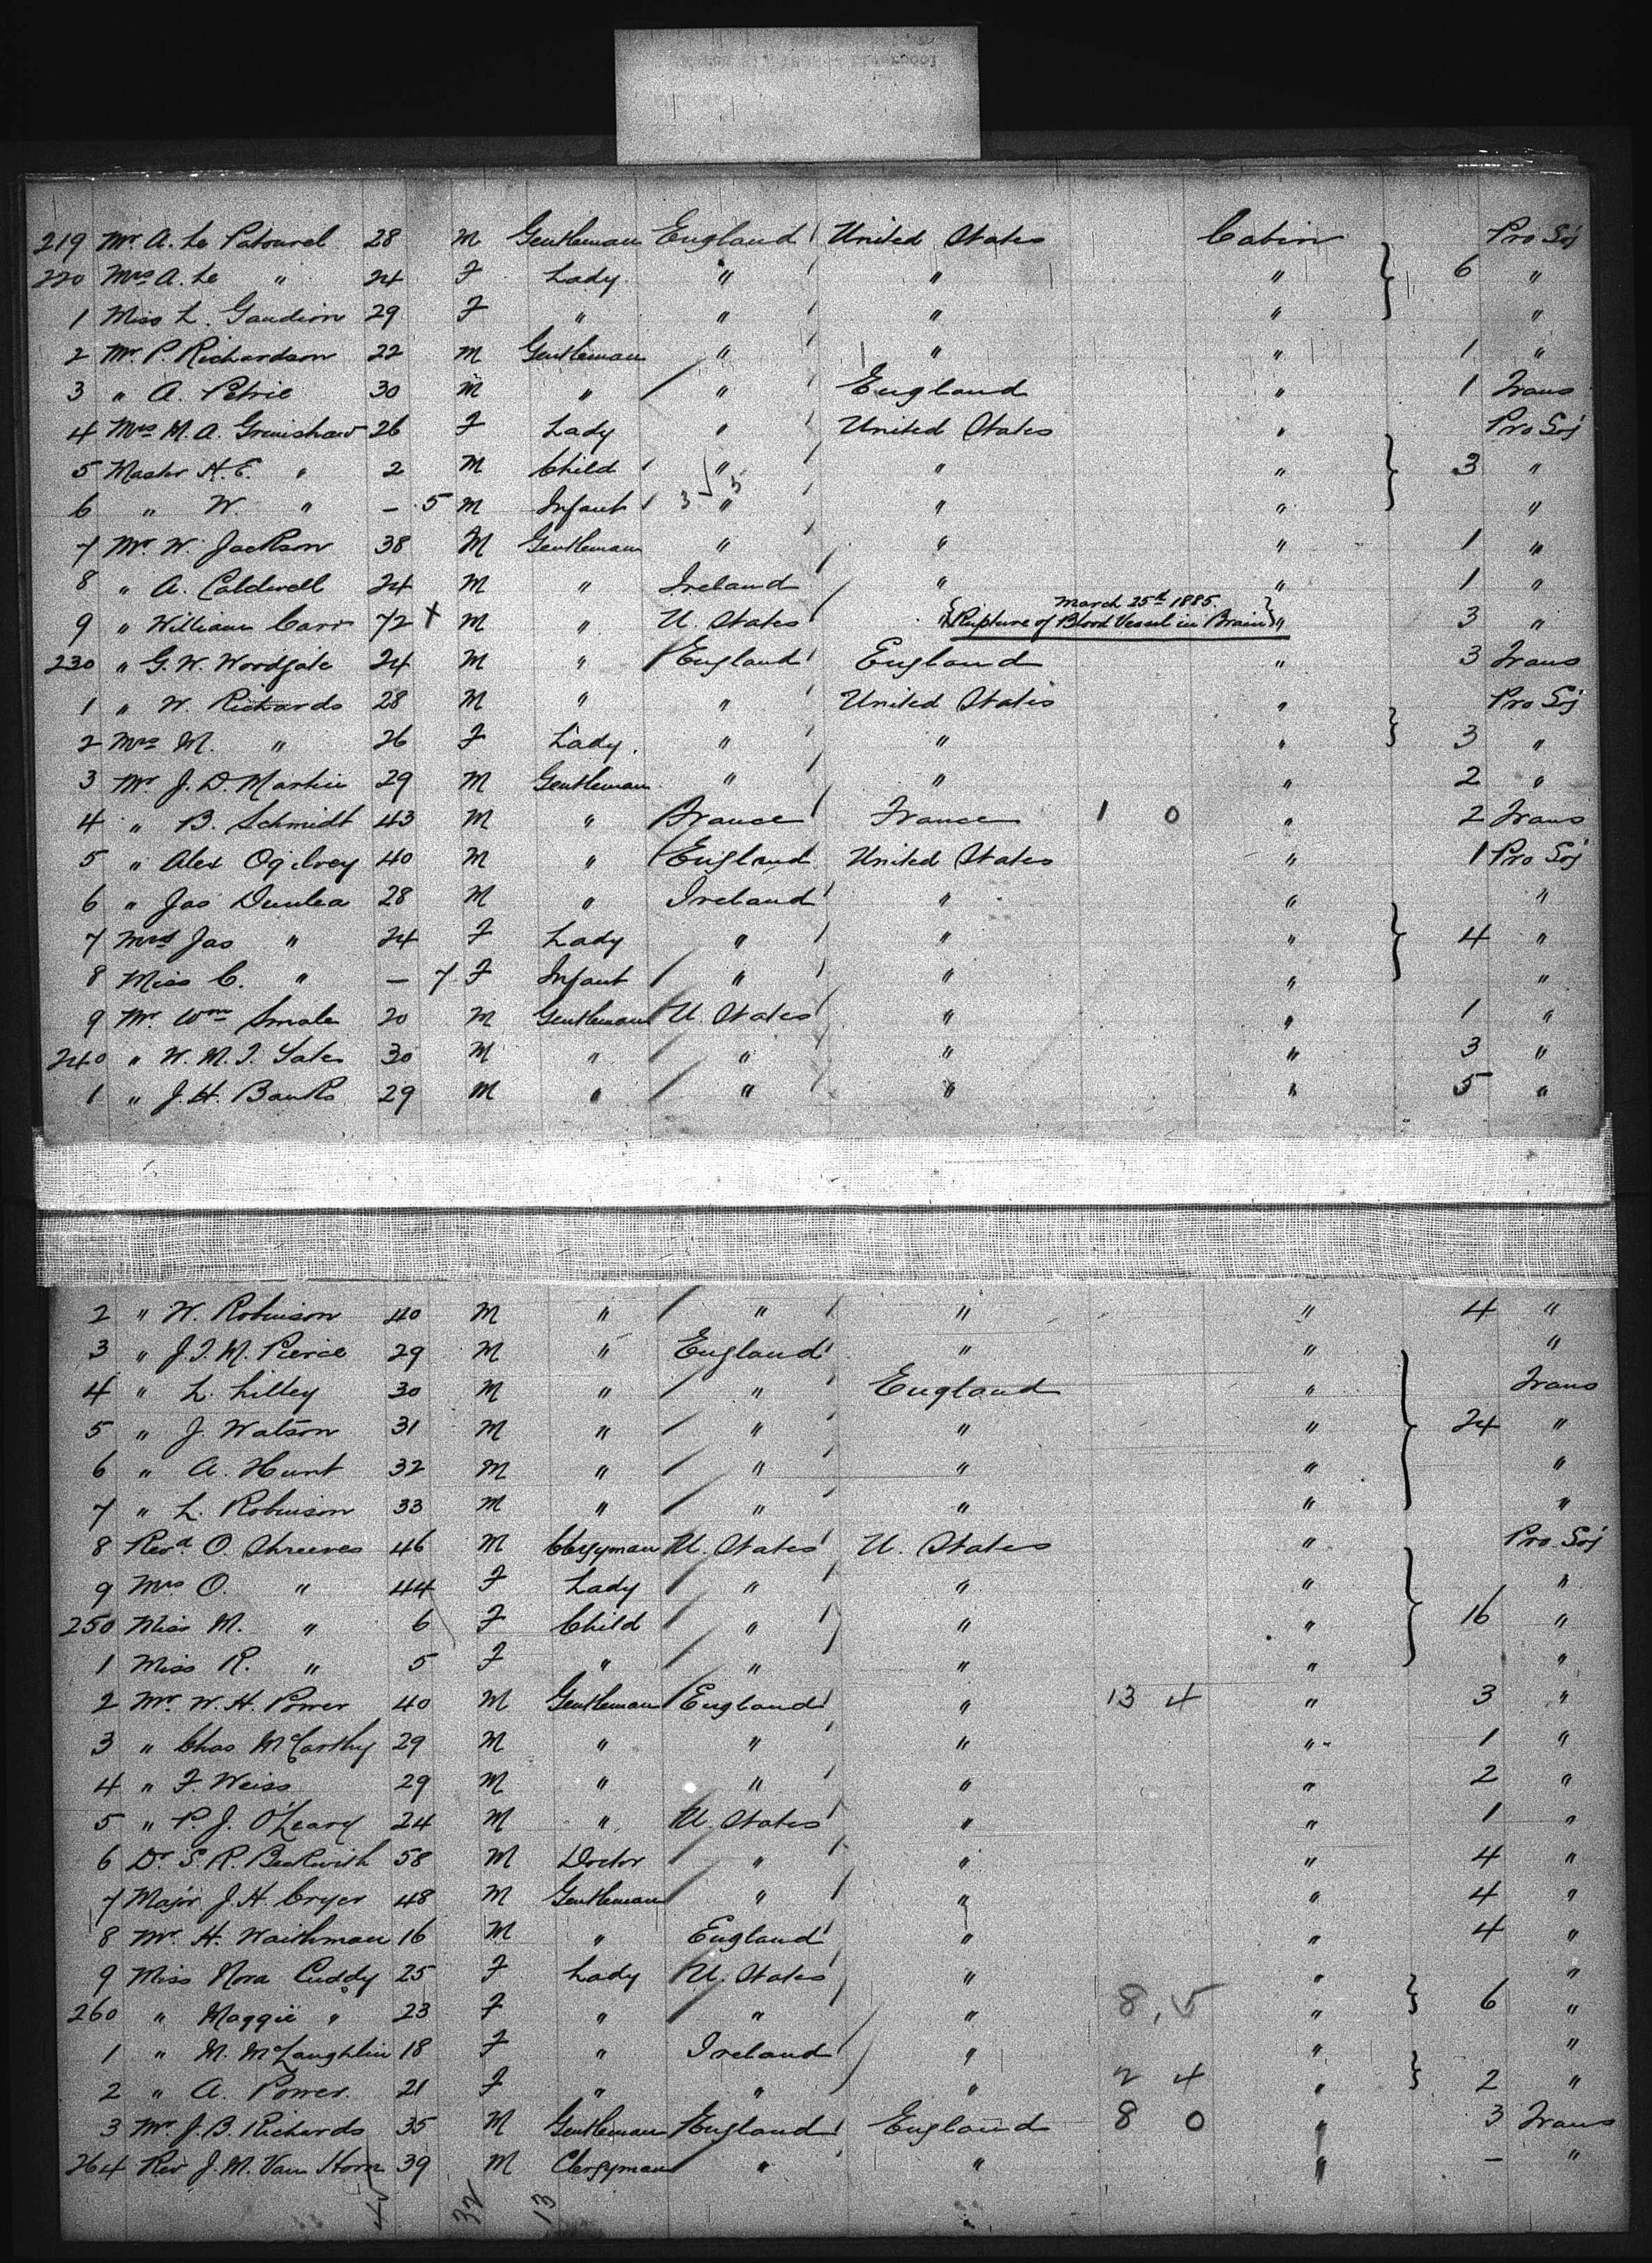 219 Mr. A. Le Patourel 28 M Gentleman England United States Cabin Pro Soj
220 Mrs A. Le " 24 F Lady " " " } 6 "
1 Miss L. Gaudion 29 F " " " " "
2 Mr. P. Richardson 22 M Gentleman " " " 1 "
3 " A. Petrie 30 M " " England " 1 Trans
4 Mrs M. A. Grimshaw 26 F Lady " United States " Pro Soj
5 Master H. E. " 2 M Child " " " } 3 "
6 " W. " – 5 M Infant " " " "
7 Mr. W. Jackson 38 M Gentleman " " " 1 "
8 " A. Caldwell 24 M " Ireland " " 1 "
March 25th 1885.
9 " William Carr 72 + M " U. States { Rupture of Blood Vessel in Brain } " 3 "
230 " G. W. Woodgate 24 M " England England " 3 Trans
1 " W. Richards 28 M " " United States " Pro Soj
2 Mrs M. " 26 F Lady " " " } 3 "
3 Mr. J. D. Martin 29 M Gentleman " " " 2 "
4 " B. Schmidt 43 M " France France 1 0 " 2 Trans
5 " Alex Ogilvey 40 M " England United States " 1 Pro Soj
6 " Jas Dunlea 28 M " Ireland " " "
7 Mrs Jas " 24 F Lady " " " } 4 "
8 Miss C. " – 7 F Infant " " " "
9 Mr. Wm Smale 20 M Gentleman U. States " " 1 "
240 " W. M. T. 30 M " " " " 3 "
1 " J. H. Banks 29 M " " " " 5 "
2 " W. Robinson 40 M " " " " 4 "
3 " J. T. M. Pierce 29 M " England " " "
4 " L. Lilley 30 M " " England " Trans
5 " J. Watson 31 M " " " " } 24 "
6 " A. Hunt 32 M " " " " "
7 " L. Robinson 33 M " " " " "
8 Revd O. Shreeves 46 M Clergyman U. States U. States " Pro Soj
9 Mrs O. " 44 F Lady " " " "
250 Miss M. " 6 F Child " " " } 16 "
1 Miss R. " 5 F " " " " "
2 Mr. W. H. Power 40 M Gentleman England " 13 4 " 3 "
3 " Chas McCarthy 29 M " " " " 1 "
4 " F. Weiss 29 M " " " " 2 "
5 " P. J. O'Leary 24 M " U. States " " 1 "
6 Dr. S. R. Beckwith 58 M Doctor " " " 4 "
7 Major J. H. Cryer 48 M Gentleman " " " 4 "
8 Mr. H. Waithman 16 M " England " " 4 "
9 Miss Nora Cuddy 25 F Lady U. States " " "
260 " Maggie " 23 F " " " 8, 5 " } 6 "
1 " M. McLaughlin 18 F " Ireland " " "
2 " A. Power. 21 F " " " 2 4 " } 2 "
3 Mr. J. B. Richards 35 M Gentleman England England 8 0 " 3 Trans
264 Rev J. M. Van Horn 39 M Clergyman " " " – "
45 32 13